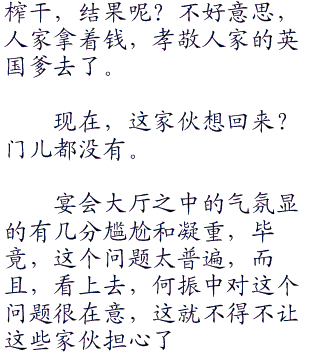 榨干，结果呢？不好意思，
人家拿着钱，孝敬人家的英
国爹去了。
现在，这家伙想回来？
门儿都没有。
宴会大厅之中的气氛显
的有几分尴尬和凝重，毕
竟，这个问题太普遍，而
且，看上去，何振中对这个
问题很在意，这就不得不让
这些家伙担心了